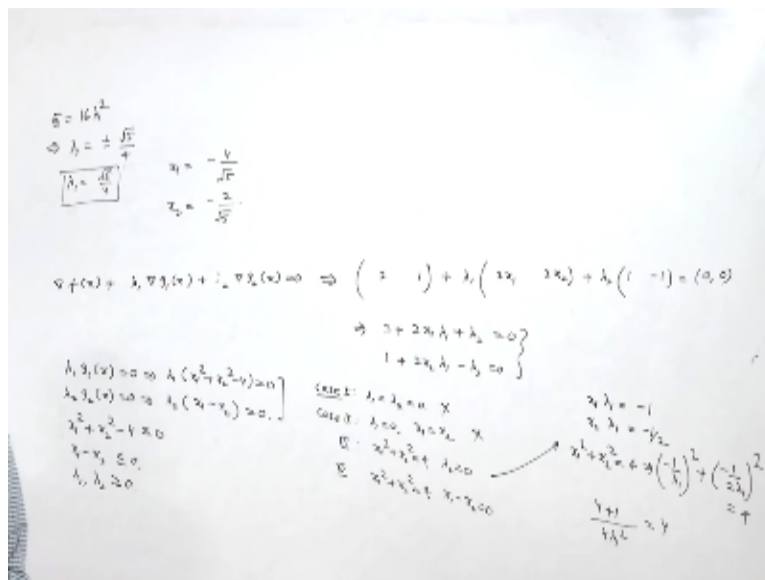 5 = 16λ²
⇒ λ₁ = ± √5/4
λ₁ = √5/4
x₁ = - 4/√5
x₂ = - 2/√5
∇f(x) + λ₁ ∇g₁(x) + λ₂ ∇g₂(x) = 0 ⇒ ( 2 1 ) + λ₁ ( 2x₁ 2x₂ ) + λ₂ ( 1 -1 ) = (0, 0)
⇒ 2 + 2x₁ λ₁ + λ₂ = 0 }
1 + 2x₂ λ₁ - λ₂ = 0 }
λ₁ g₁(x) = 0 ⇒ λ₁ ( x₁² + x₂² - 4 ) = 0
λ₂ g₂(x) = 0 ⇒ λ₂ ( x₁ - x₂ ) = 0.
x₁² + x₂² - 4 ≤ 0
x₁ - x₂ ≤ 0.
λ₁, λ₂ ≥ 0.
Case I: λ₁ = λ₂ = 0 ×
Case II: λ₁ = 0, x₁ = x₂ ×
III: x₁² + x₂² = 4, λ₂ = 0
IV: x₁² + x₂² = 4, x₁ - x₂ = 0
x₁ λ₁ = -1
x₂ λ₁ = -1/2
x₁² + x₂² = 4 ⇒ (-1/λ₁)² + (-1/2λ₁)² = 4
4+1/4λ² = 4